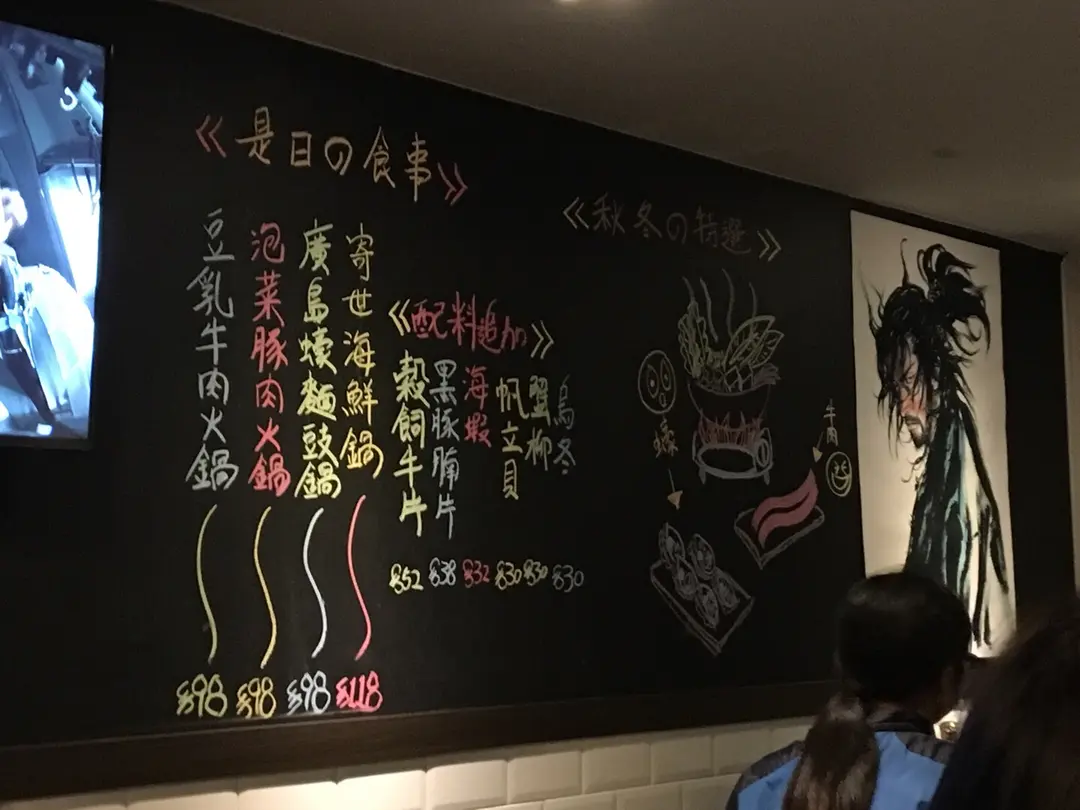 《是日の食事》
豆乳牛肉火鍋
$98
泡菜豚肉火鍋
$98
廣島蠔麵豉鍋
$98
寄世海鮮鍋
$118
《配料追加》
穀飼牛片
$52
黑豚腩片
$38
海蝦
$32
帆立貝
$30
蟹柳
$30
烏冬
$30
《秋冬の特選》
蠔
牛肉